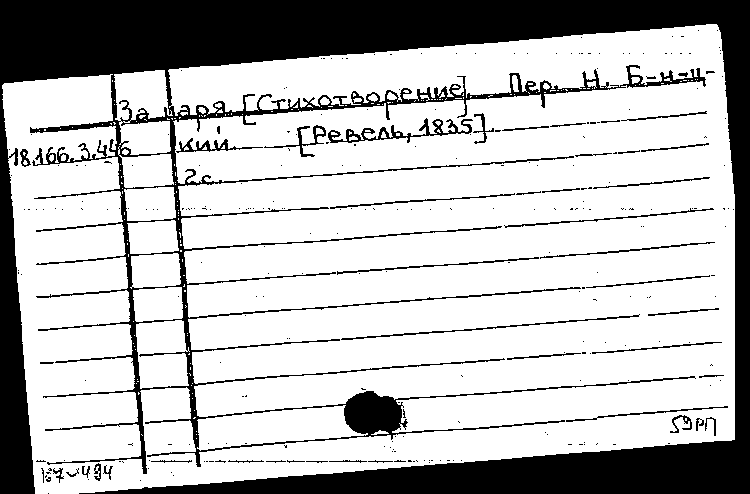 За царя. [Стихотворение]. Пер. Н. Б-н-ц-
18.166.3.446 кий. [Ревель, 1835].
2 с.
59РП
167-494